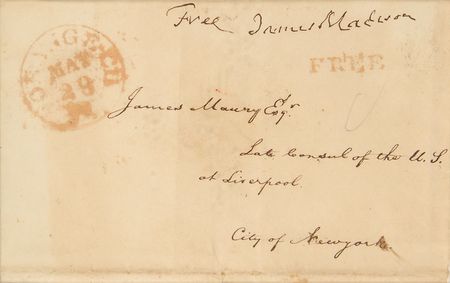 Free James Madison
FREE
ORANGE C.H
MAY
28
James Maury Esqr.
Late Consul of the U. S.
at Liverpool.
City of Newyork.